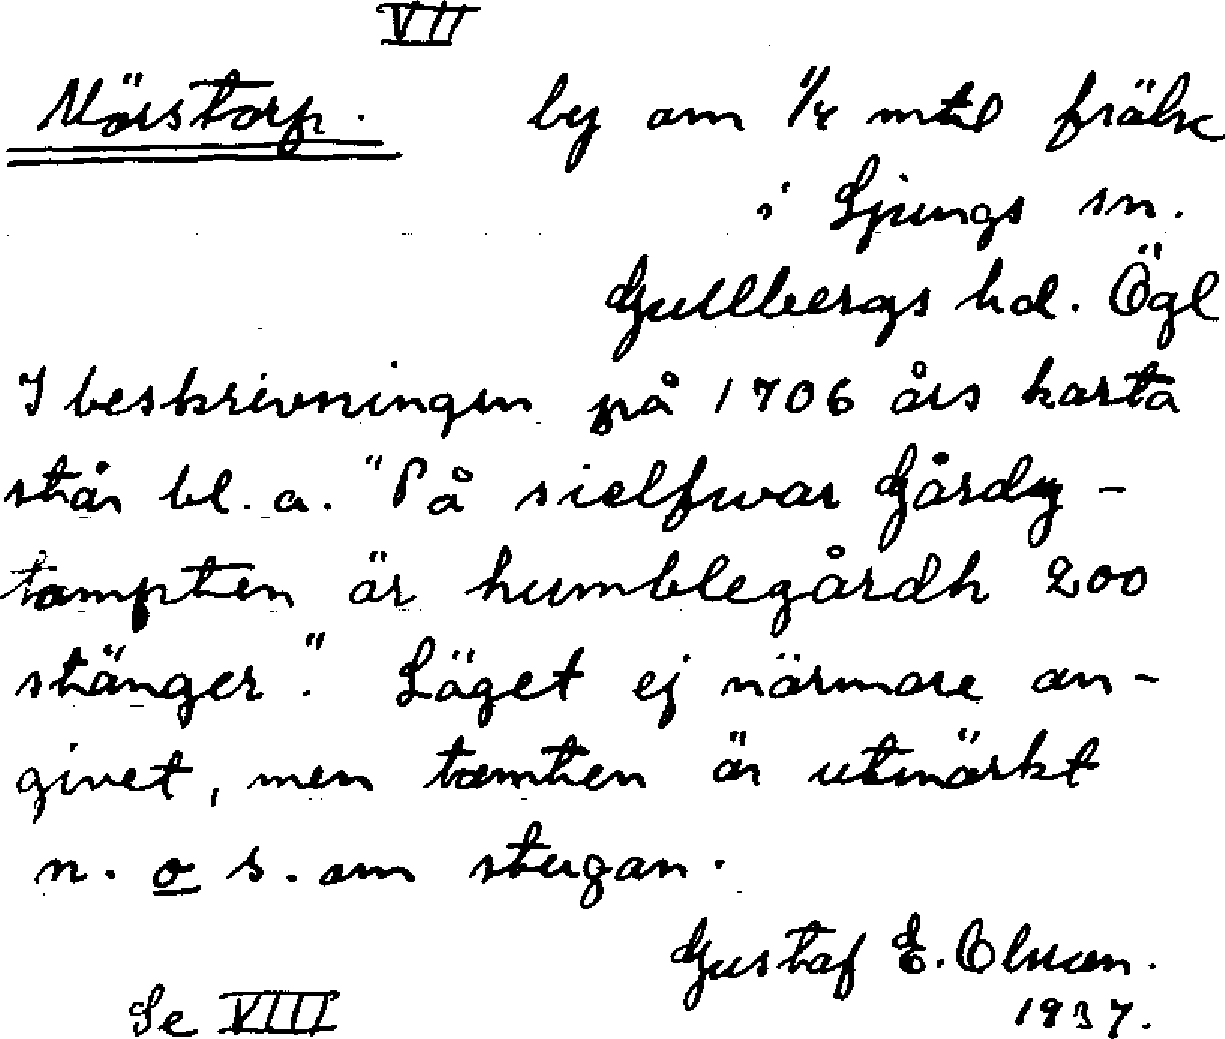 VII
Mörstorp. by om 1/4 mtl frälse
i Ljungs sn.
Gullbergs hd. Ögl
I beskrivningen på 1706 års karta
står bl. a. "På sielfwar Gårdz-
tompten är humblegårdh 200
stänger". Läget ej närmare an-
givet, men tomten är utmärkt
n. o s. om stugan.
Gustaf E. Olsson.
1937.
Se VIII